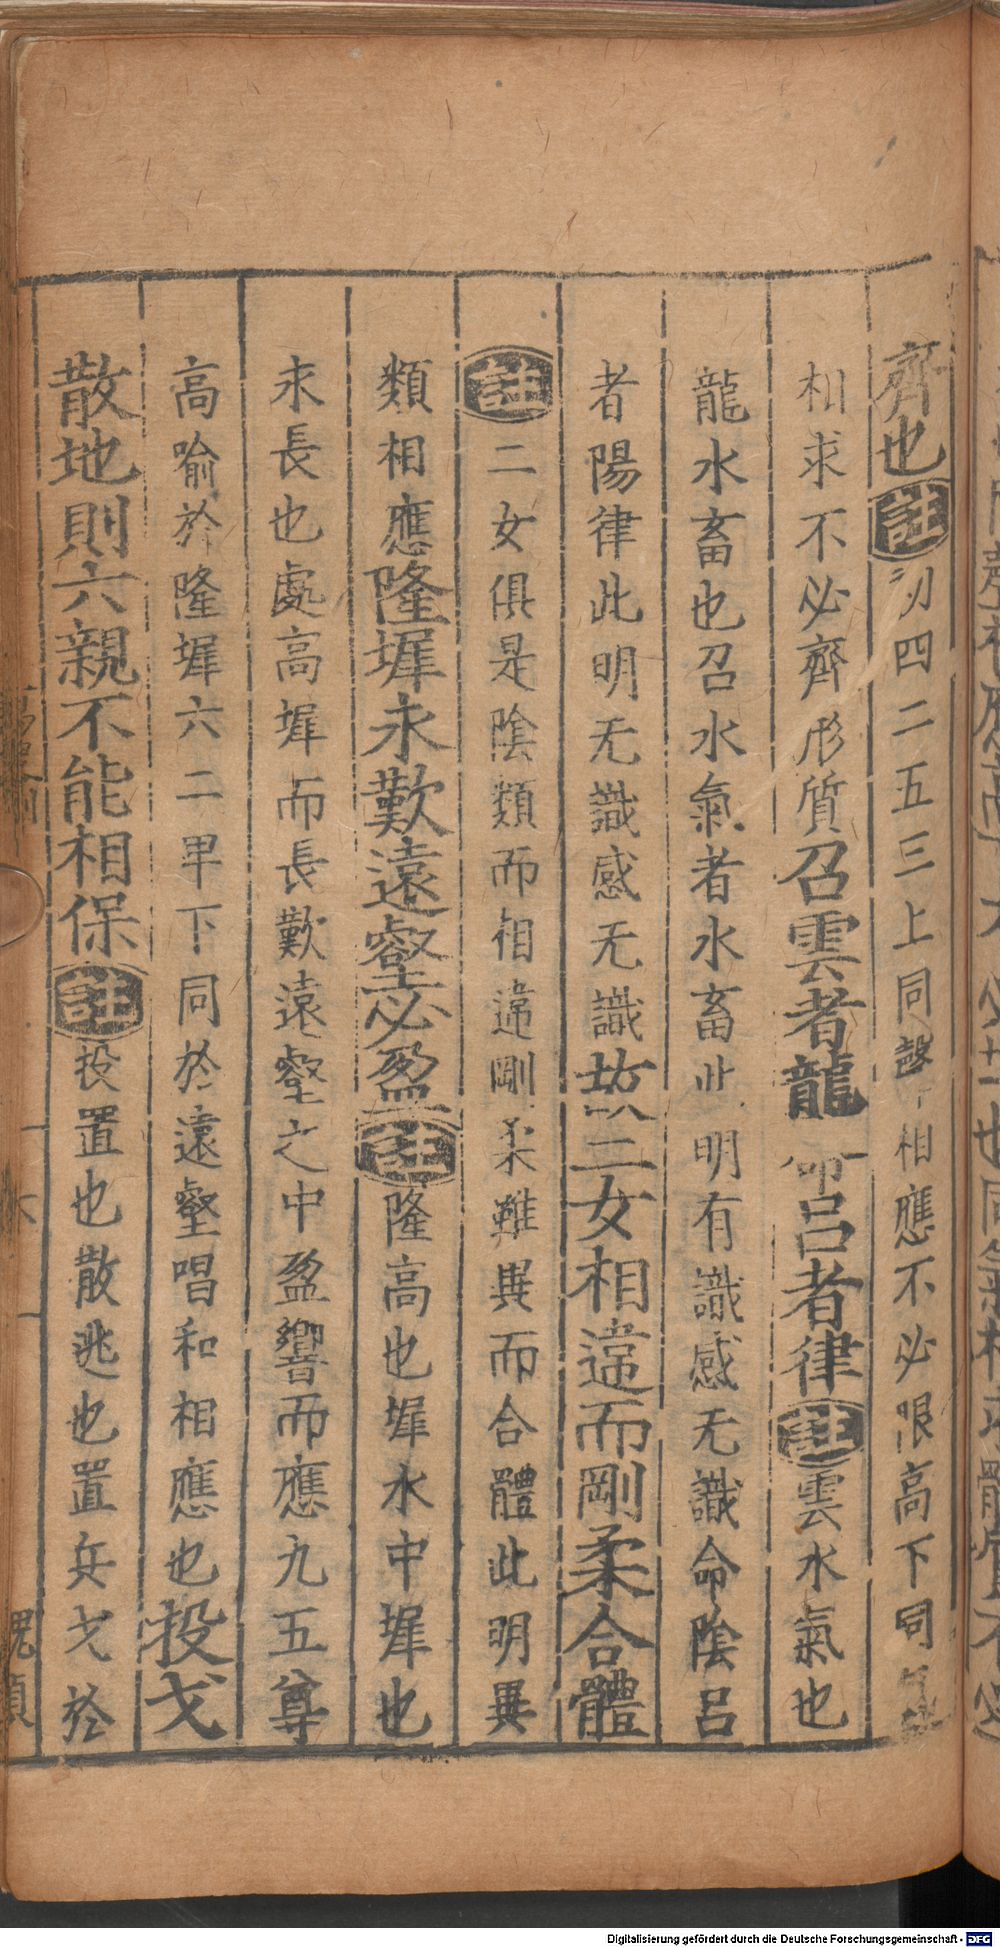 齊也註初四二五三上同聲相應不必限高下同氣
相求不必齊形質召雲者龍命呂者律註雲水氣也
龍水畜也召水氣者水畜此明有識感无識命陰呂
者陽律此明无識感无識故二女相違而剛柔合體
註二女俱是陰類而相違剛柔雖異而合體此明異
類相應隆墀永歎遠壑必盈註隆高也墀水中墀也
永長也處高墀而長歎遠壑之中盈響而應九五尊
高喻於隆墀六二卑下同於遠壑唱和相應也投戈
散地則六親不能相保註投置也散逃也置兵戈於
Digitalisierung gefördert durch die Deutsche Forschungsgemeinschaft - DFG